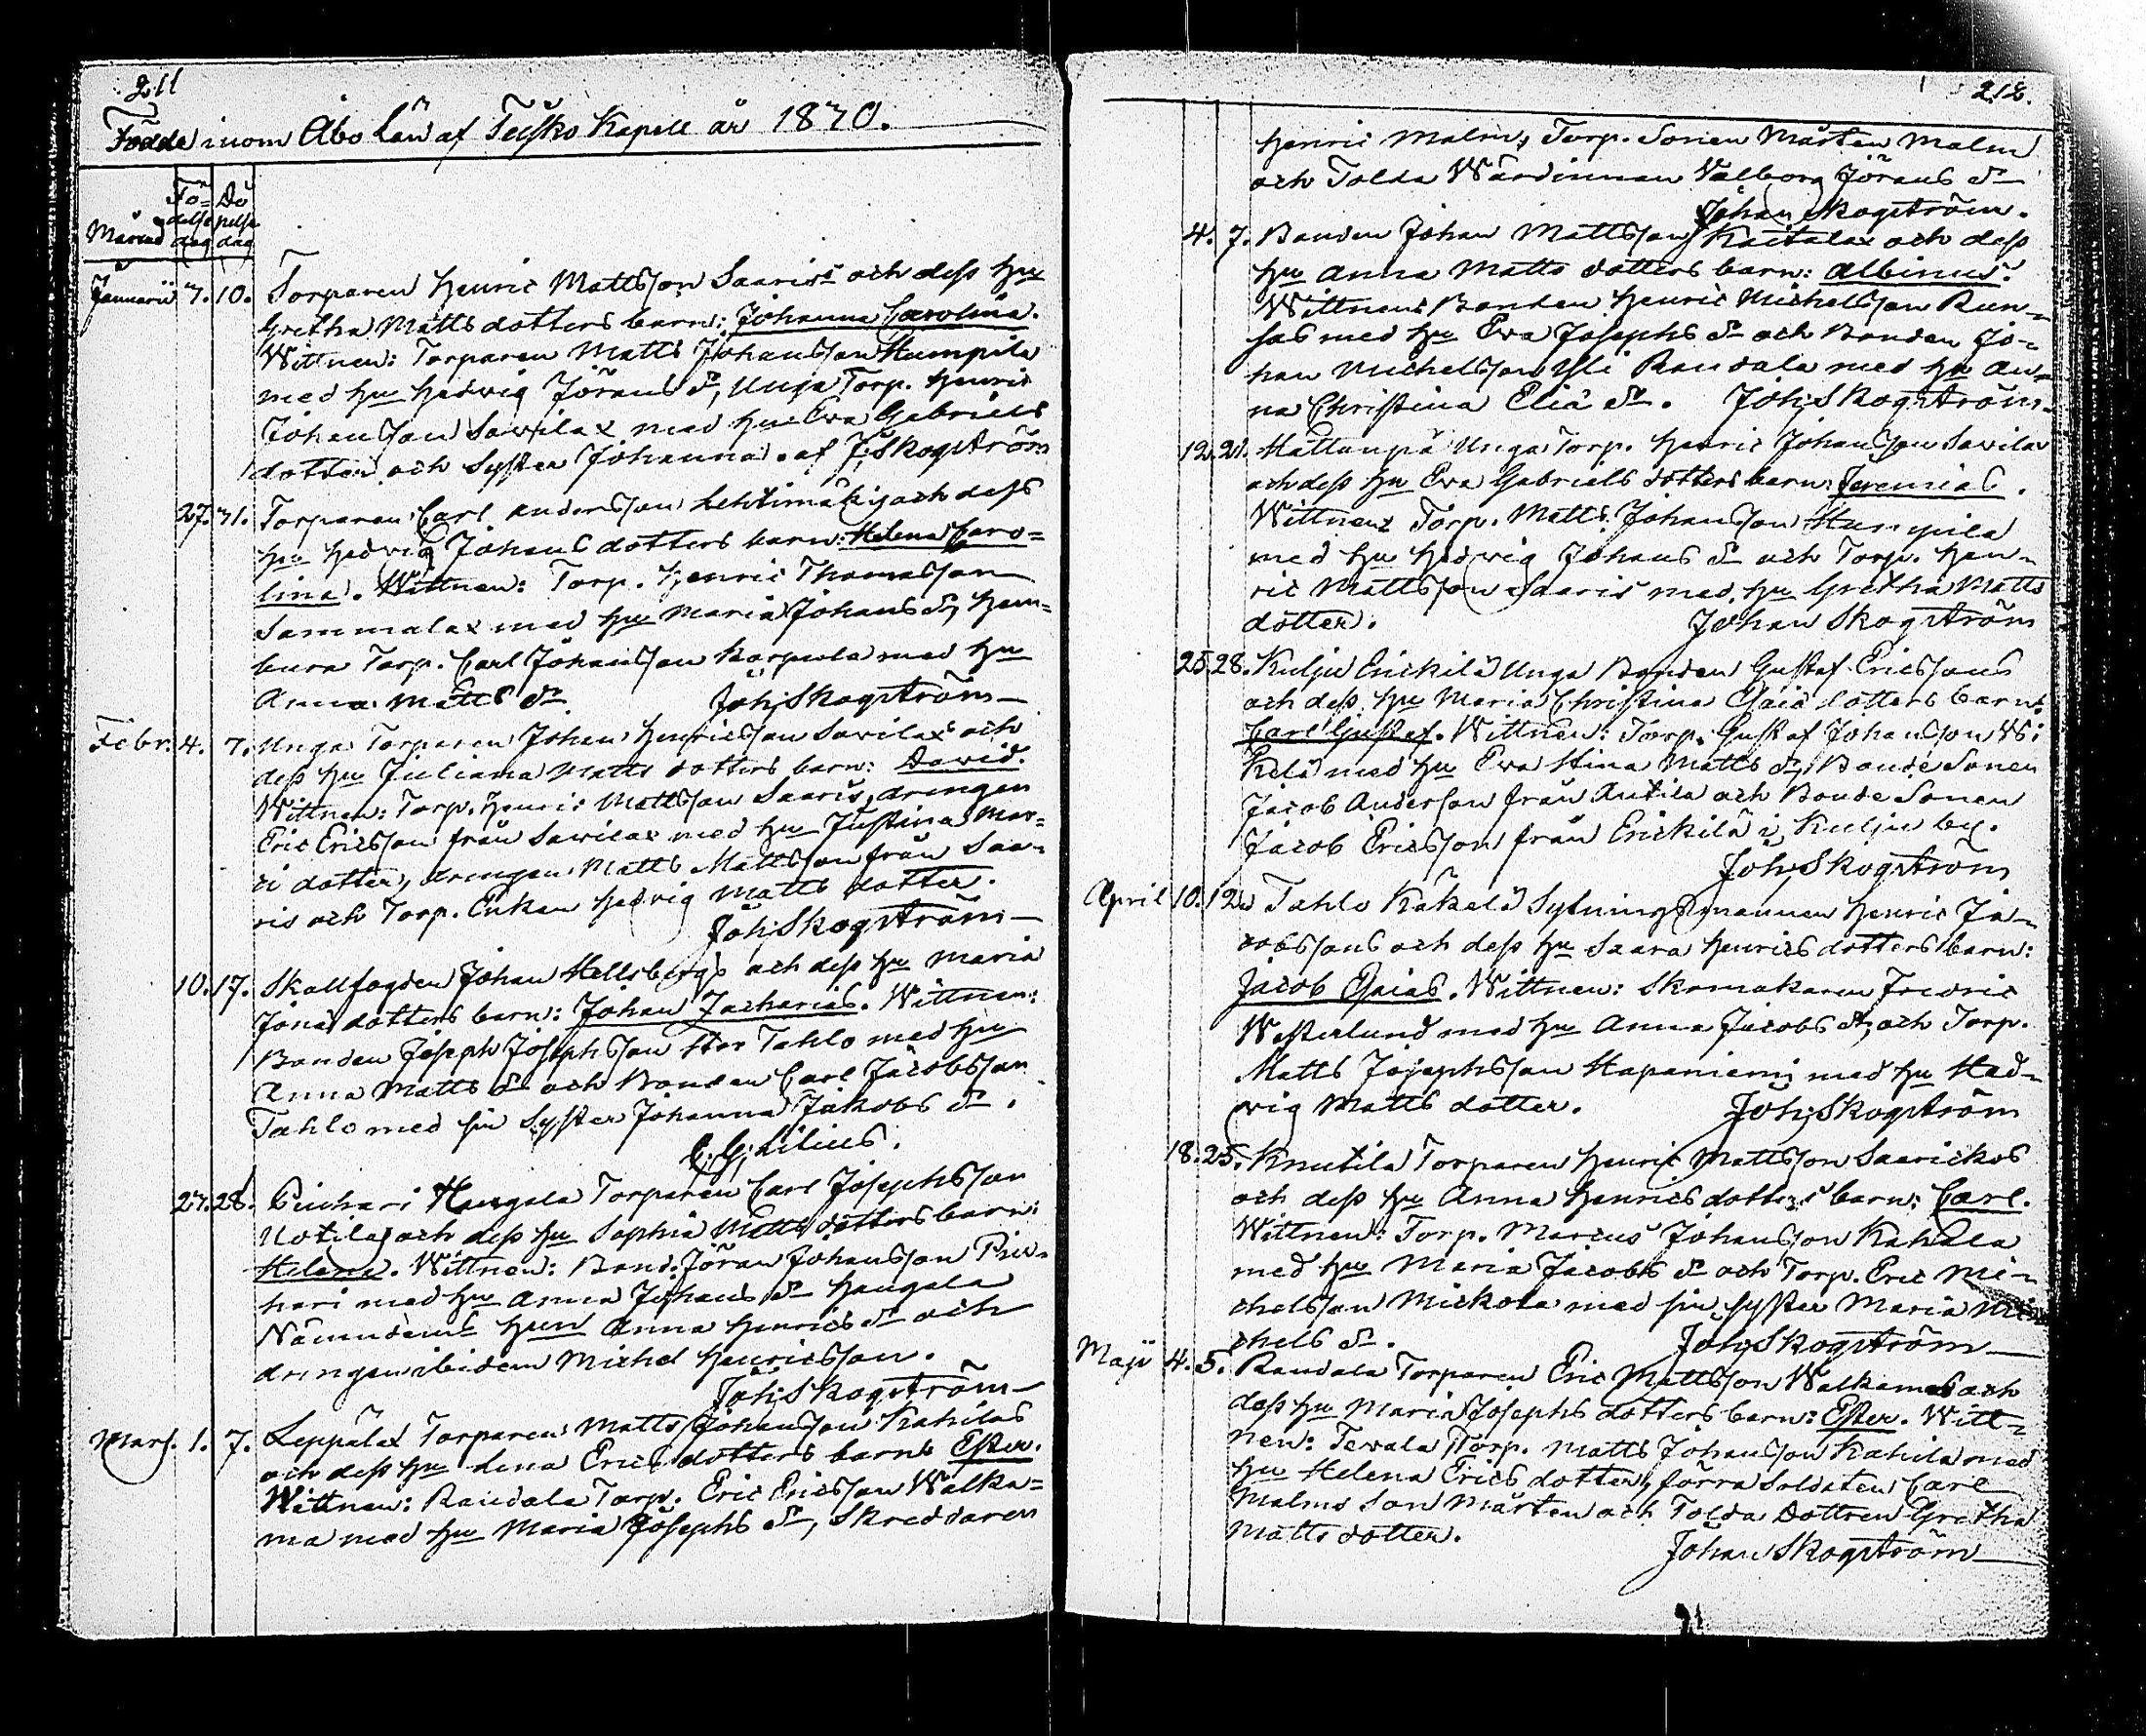 211
Födde inom Åbo Län af Teisko Kapell år 1830.
Månad
Fö=
delse
dag
Dö
pelse
dag
Januarii 7. 10. Torparen Henric Mattsson Saaris och dess Hu
Gretha Matts dotters barn: Johanna Carolina.
Wittnen: Torparen Matts Johansson Humpila
med hu Hedvig Jörans dr, Unga Torp. Henric
Johansson Savilax med hu Eva Gabriels
dotter och Syster Johanna. af J: Skogström
27. 31. Torparen Carl Andersson Lehtimäki och dess
hu Hedvig Johans dotters barn: Helena Caro=
lina. Wittnen: Torp. Henric Thomasson
Sammalax med hu Maria Johans dr, Hem=
bura Torp. Carl Johansson Korpula med hu
Anna Matts dr Joh: Skogström
Febr. 4. 7. Unga Torparen Johan Henricsson Savilax och
dess hu Juliana Matts dotters barn: David.
Wittnen: Torp. Henric Mattsson Saaris, drengen
Eric Ericsson från Savilax med hu Justina Mar=
ti dotter, drengen Matts Mattsson från Saa=
ris och Torp. Enkan Hedvig Matts dotter.
Joh: Skogström
10. 17. Skallfogden Johan Hellsbergs och dess hu Maria
Jonas dotters barn: Johan Zacharias. Wittnen:
Bonden Joseph Josephsson Stor Tahlo med hu
Anna Matts dr och Bonden Carl Jacobsson
Tahlo med sin Syster Johanna Jakobs dr.
C. G. Lilius.
27. 28. Piichari Haugala Torparen Carl Josephsson
Uotila och dess hu Sophia Matts dotters barn:
Helena. Wittnen: Bond. Jöran Johansson Piic=
hari med hu Anna Johans dr Haugala
Nämndems hun Anna Henrics dr och
drengen ibidem Michel Henricsson.
Joh: Skogström
Mars. 1. 7. Leppälax Torparen Matts Johansson Kahilas
och dess hu Lena Erics dotters barn Ester.
Wittnen: Raudala Torp. Eric Ericsson Walka=
ma med hu Maria Josephs dr, Skreddaren
212.
Henric Malm, Torp. Sonen Mårten Malm
och Tolda Wärdinnan Valborg Jörans dr
Johan Skogström.
4. 7. Bonden Johan Mattsson Kaitalax och dess
hu Anna Matts dotters barn: Albinus.
Wittnen: Bonden Henric Michelsson Run=
sas med hu Eva Josephs dr och Bonden Jo=
han Michelsson Yli Raudala med hu An=
na Christina Eliæ dr. Joh: Skogström
12. 21. Mattanpä Unga Torp. Henric Johansson Savilax
och dess hu Eva Gabriels dotters barn: Jeremias.
Wittnen: Torp. Matts Johansson Humpila
med hu Hedvig Johans dr och Torp. Hen=
ric Mattsson Saaris med hu Gretha Matts
dotter. Johan Skogström
25. 28. Kulju Erickilä Unga Bonden Gustaf Ericssons
och dess hu Maria Christina Esaiæ dotters barn:
Carl Gustaf. Wittnen: Torp. Gustaf Johansson Wi
kilä med hu Eva Stina Matts dr, Bonde Sonen
Jacob Andersson från Antila och Bonde Sonen
Jacob Ericsson från Erickilä i Kulju by.
Joh: Skogström
April 10. 12. Tahlo Käkelä Sytningsmannen Henric Ja=
cobssons och dess hu Saara Henrics dotters barn:
Jacob Esaias. Wittnen: Skomakaren Fredric
Westerlund med hu Anna Jacobs dr, och Torp.
Matts Josephsson Hapaniemi med hu Hed=
vig Matts dotter. Joh: Skogström
18. 25. Knutila Torparen Henric Mattsson Saarickos
och dess hu Anna Henrics dotters barn: Carl.
Wittnen: Torp. Marcus Johansson Kahala
med hu Maria Jacobs dr och Torp. Eric Mi=
chelsson Mickola med sin syster Maria Mi
chels dr. Joh: Skogström
Maji 4. 5. Raudala Torparen Eric Mattsson Walkamas och
dess hu Maria Josephs dotters barn: Ester. Witt=
nen: Terala Torp. Matts Johansson Kahila med
hu Helena Erics dotter, förra Soldaten Carl
Malms Son Mårten och Tolda Dottren Gretha
Matts dotter.
Johan Skogström